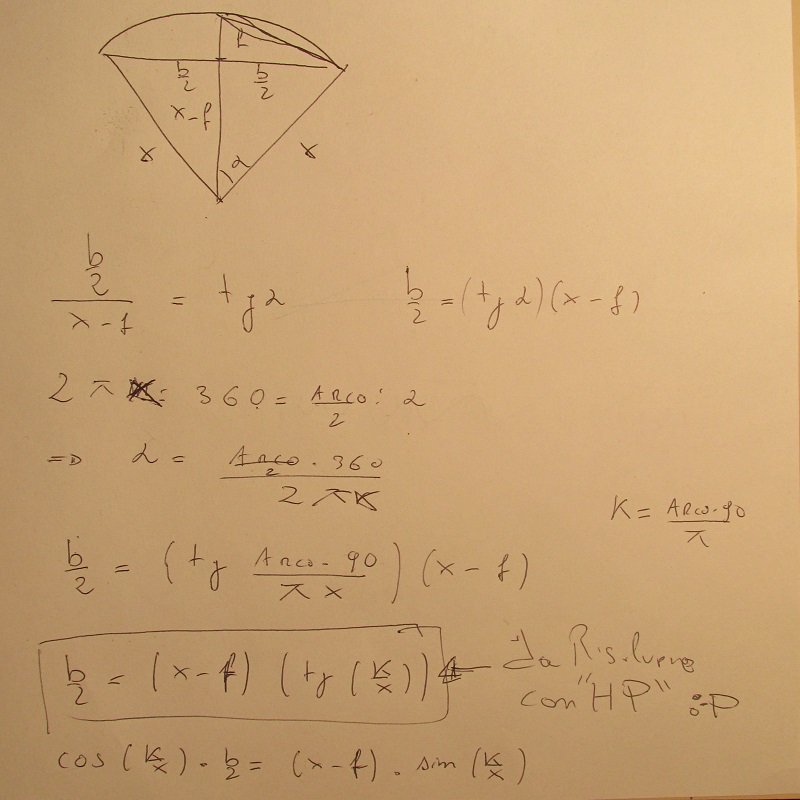 f
b/2 b/2
x-f
x α x
(b/2)/(x-f) = tg α b/2 = (tg α)(x-f)
2πx : 360 = ARCO/2 : α
=> α = (ARCO/2 · 360)/(2πx)
K = (ARCO·90)/π
b/2 = (tg (ARCO·90)/(πx)) (x-f)
b/2 = (x-f) (tg (K/x)) ← da Risolvere
con "HP" :-P
cos (K/x) · b/2 = (x-f) · sin (K/x)